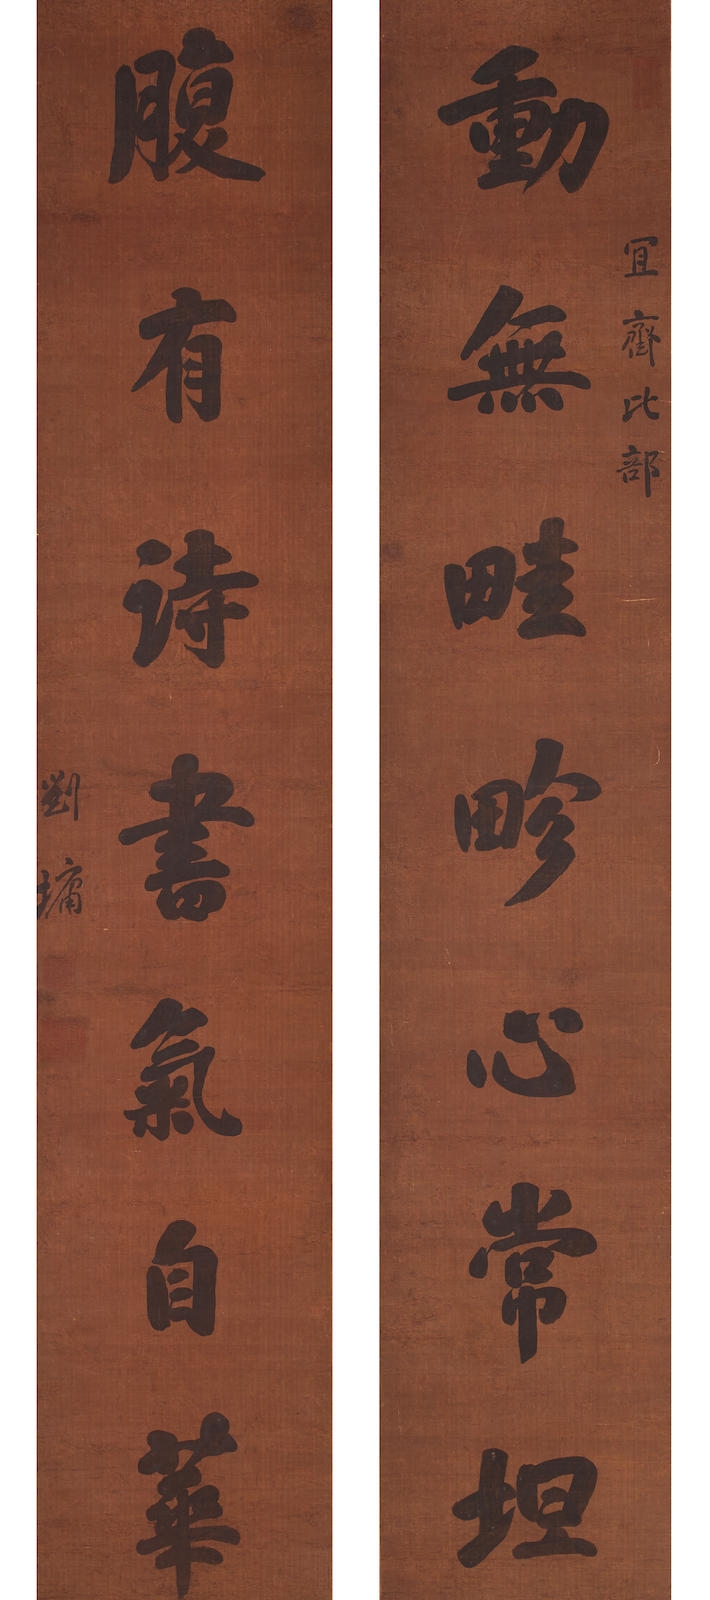 動無畦畛心常坦
冝齋比部
腹有詩書氣自華
劉墉